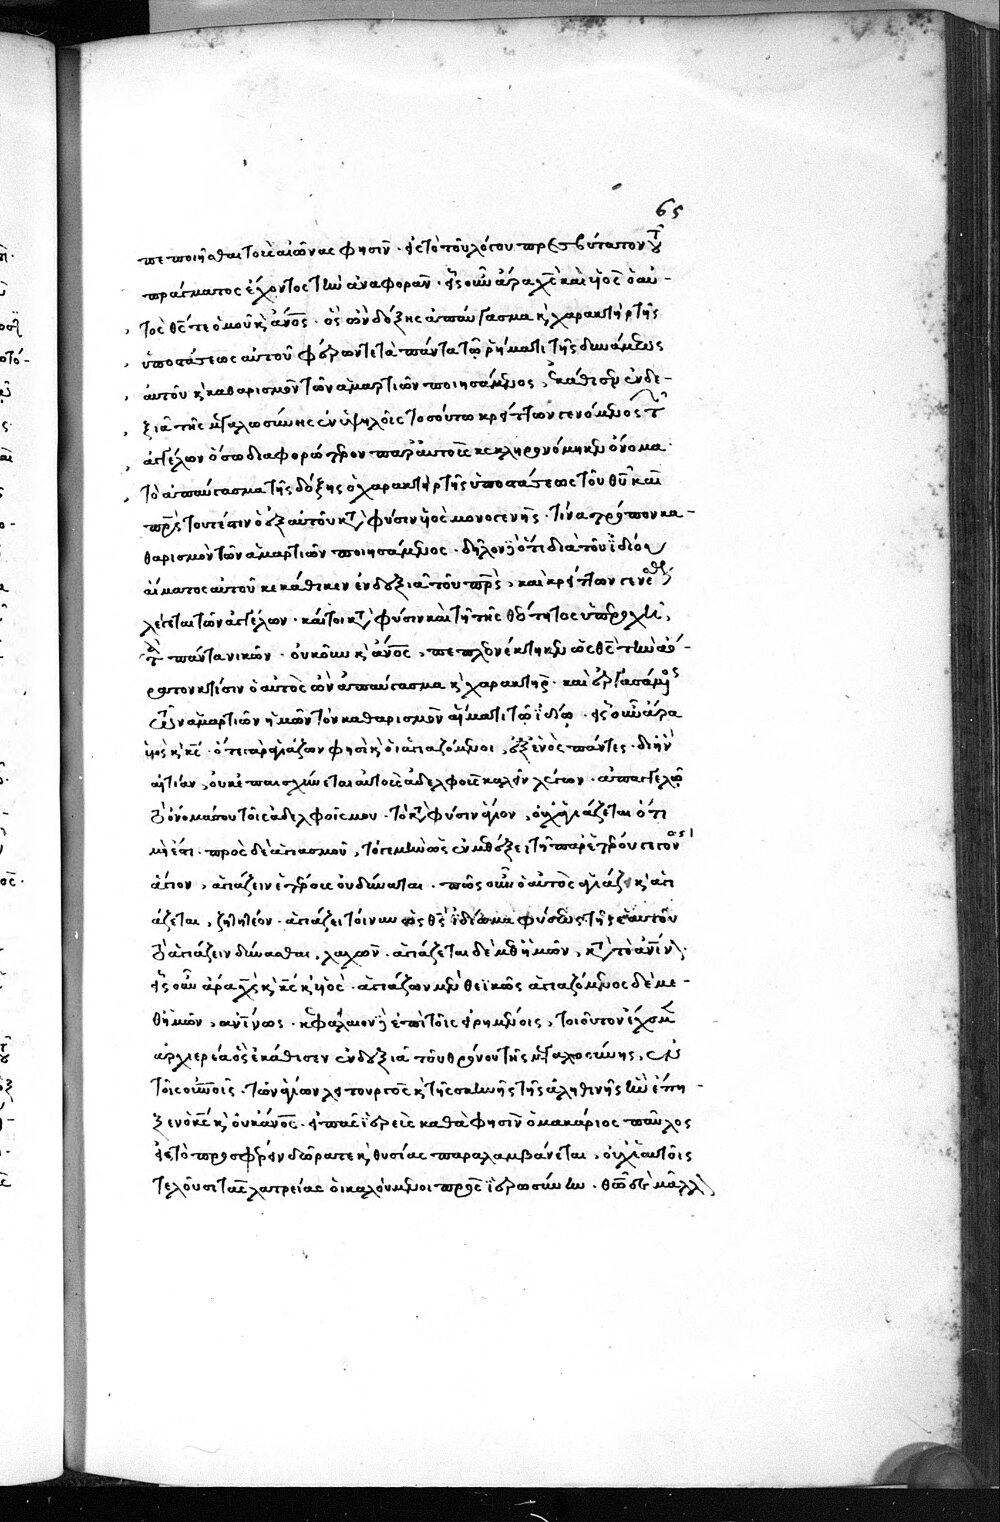 65
πεποιῆσθαι τοὺς αἰῶνας φησὶν · εἰς τὸ τοῦ λόγου πρεσβύτατον τοῦ
πράγματος ἔχοντος τὴν ἀναφοράν · εἷς οὖν ἄρα χς καὶ υἱὸς ὁ αὐ-
τὸς θς τε ὁμοῦ κ ἄνος · ὃς ὢν δόξης ἀπαύγασμα κ χαρακτὴρ τῆς
ὑποστάσεως αὐτοῦ φέρων τε τὰ πάντα τῷ ῥήματι τῆς δυνάμεως
αὐτοῦ κ καθαρισμὸν τῶν ἁμαρτιῶν ποιησάμενος, ἐκάθισεν ἐν δε-
ξιᾷ τῆς μεγαλωσύνης ἐν ὑψηλοῖς τοσούτω κρείττων γενόμενος τῶν
ἀγγέλων ὅσω διαφορώτερον παρ' αὐτοὺς κεκληρονόμηκεν ὄνομα
τὸ ἀπαύγασμα τῆς δόξης ὁ χαρακτὴρ τῆς ὑποστάσεως τοῦ θυ καὶ
πρς τουτέστιν ὁ ἐξ αὐτοῦ κατὰ φύσιν υἱὸς μονογενής · τίνα τρόπον κα-
θαρισμὸν τῶν ἁμαρτιῶν ποιησάμενος · δηλονότι διὰ τοῦ ἰδίου
αἵματος αὐτοῦ κεκάθικεν ἐν δεξιᾷ τοῦ πρς, καὶ κρείττων γενέσθαι
λέγεται τῶν ἀγγέλων · καίτοι κατὰ φύσιν καὶ τῇ τῆς θεότητος ὑπεροχῇ,
τὰ πάντα νικῶν · οὐκοῦν κ ἄνος, πεπλεονέκτηκεν ὡς θς τὴν ἀό-
ρατον κτίσιν ὁ αὐτὸς ὢν ἀπαύγασμα κ χαρακτὴρ · καὶ ἐργασάμενος
τῶν ἁμαρτιῶν ἡμῶν τὸν καθαρισμὸν αἵματι τῷ ἰδίῳ · εἷς οὖν ἄρα
υἱὸς κ κς · ὅ τε γὰρ ἁγιάζων φησὶ κ οἱ ἁγιαζόμενοι, ἐξ ἑνὸς πάντες · δι' ἣν
αἰτίαν, οὐκ ἐπαισχύνεται αὐτοὺς ἀδελφοὺς καλεῖν λέγων · ἀπαγγελῶ
τὸ ὄνομά σου τοῖς ἀδελφοῖς μου · τὸ κατὰ φύσιν ἅγιον, οὐχ ἁγιάζεται ὅτι
μή ἐστι · πρὸς δὲ ἁγιασμοῦ, τό γε μὴν ὡς ἐν μεθέξει τῇ παρ' ἑτέρου γεγονὸς
ἅγιον, ἁγιάζειν ἑτέρους οὐ δύναται · πῶς οὖν ὁ αὐτὸς ἁγιάζει κ ἁγι
άζεται, ζητητέον · ἁγιάζει τοίνυν ὡς θς ἰδίωμα φύσεως τῆς ἑαυτοῦ
τὸ ἁγιάζειν δύνασθαι, λαχών · ἁγιάζεται δὲ μεθ' ἡμῶν, κατὰ τὸ ἀνινον ·
εἷς οὖν ἄρα χς κ κς κ υἱὸς · ἁγιάζων μὲν θεϊκῶς ἁγιαζόμενος δὲ με-
θ' ἡμῶν, ἀνινως · κεφάλαιον δὲ ἐπὶ τοῖς εἰρημένοις, τοιοῦτον ἔχομεν
ἀρχιερέα ὃς ἐκάθισεν ἐν δεξιᾷ τοῦ θρόνου τῆς μεγαλοσύνης, ἐν
τοῖς οὐνοῖς · τῶν ἁγίων λειτουργὸς κ τῆς σκηνῆς τῆς ἀληθινῆς ἣν ἔπη-
ξεν ὁ κς κ οὐκ ἄνος · εἰ πᾶς ἱερεὺς καθά φησὶν ὁ μακάριος παῦλος
εἰς τὸ προσφέρειν δῶρά τε κ θυσίας παραλαμβάνεται, οὐχ ἑαυτοῖς
τελοῦσι τὰς λατρείας οἱ καλούμενοι πρὸς ἱερωσύνην · θῶ δὲ μᾶλλον